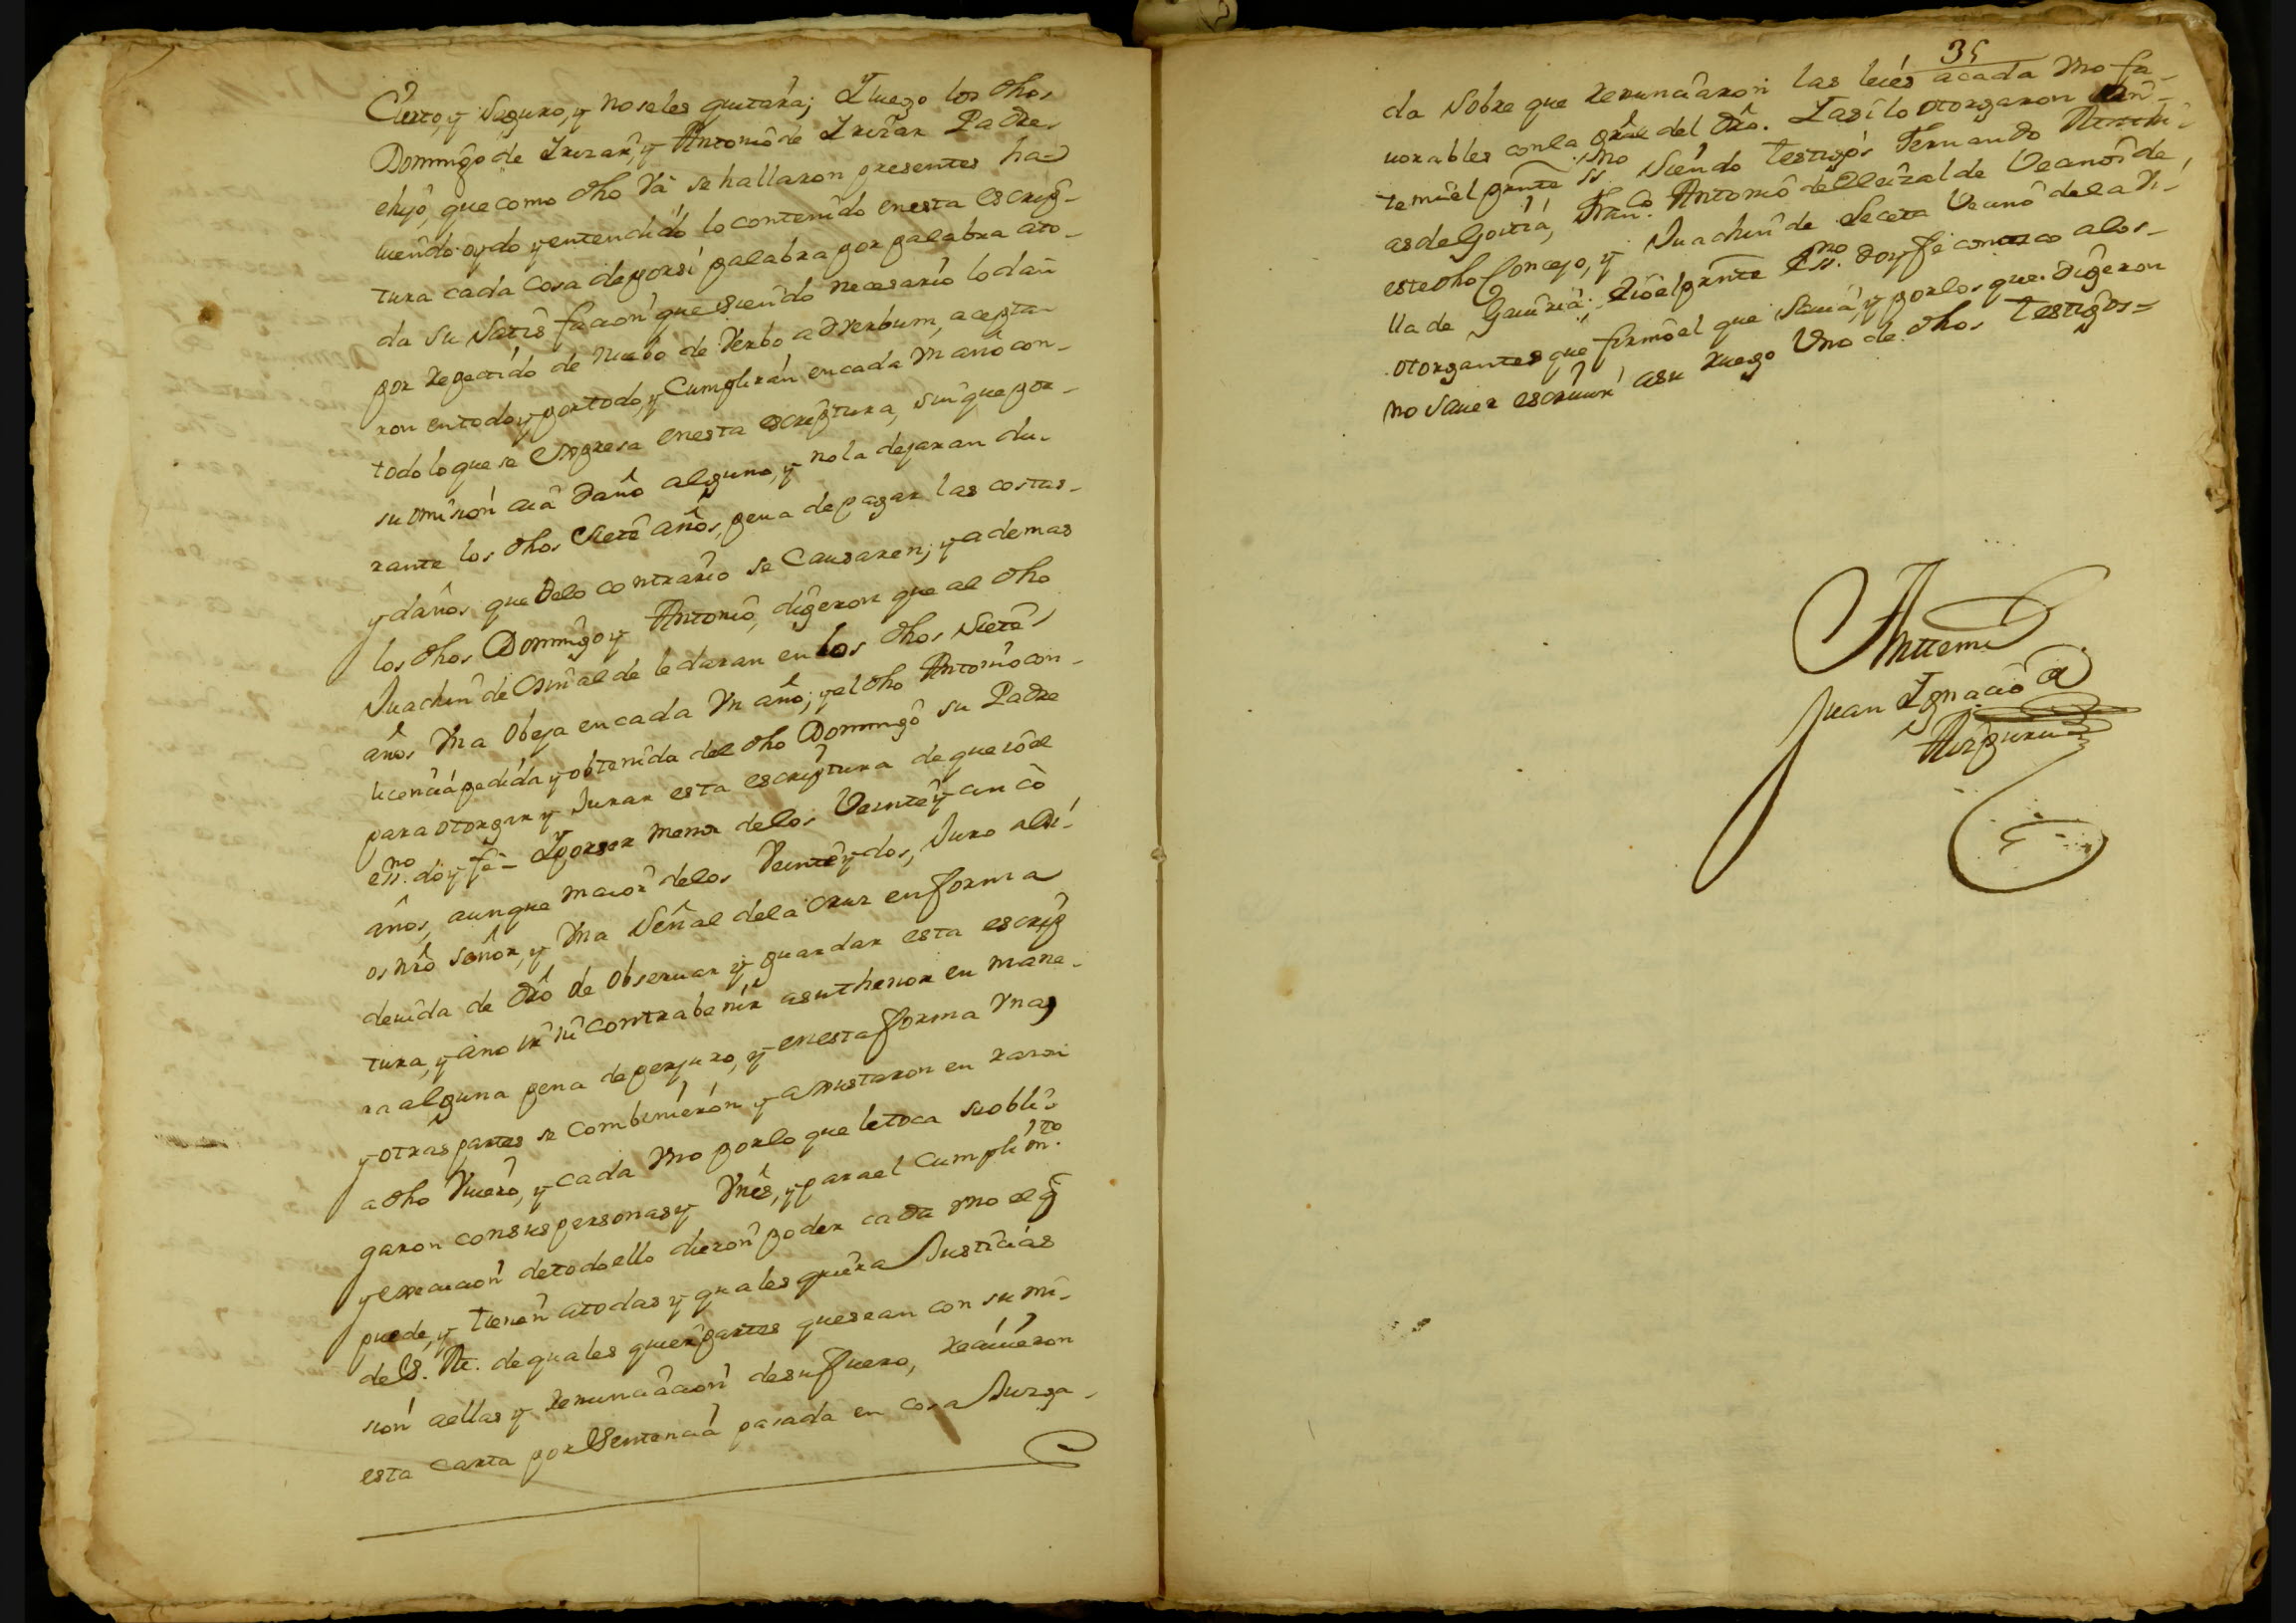 Cierto, y Seguro, y no se les quitará; Y luego los dhos
Domingo de Irizar, y Antonio de Irizar Padre
e hijo, que como dho Vá se hallaron presentes ha-
viendo oydo y entendido lo contenido en esta escrip-
tura cada cosa de por sí palabra por palabra a to-
da su Satisfacion que siendo necesario lo dan
por repetido de nuebo de Verbo ad verbum, acepta-
ron en todo y por todo, y Cumplirán en cada Vn año con
todo lo que se Expresa en esta escriptura, sin que por
su omision aia daño alguno, y no la dejaran du-
rante los dhos Siete años, pena de pagar las costas
y daños que de lo contrario se Causaren; y ademas
los dhos Domingo y Antonio, digeron que al dho
Juachin de le daran en los dhos Siete
años Vna Obeja en cada Vn año; y el dho Antonio con
licencia pedida y obtenida del dho Domingo su Padre
para otorgar y Jurar esta escriptura de que io el
essno. doy fe - Y por ser menor de los Veinte y cinco
años, aunque maior de los Veinte y dos, Juro a Di-
os nrô Señor, y Vna Señal de la Cruz en forma
deuida de drô de Obseruar y guardar esta escrip
tura, y a no ir ni contrabenir a su thenor en mane-
ra alguna pena de perjuro, y en esta forma Vnas
y otras partes se combinieron y ajustaron en razon
a dho, y cada Vno por lo que le toca se obli-
garon con sus personas y Vnes, y para el cumplimto.
y execucion de todo ello dieron poder cada vno el q̃
puede, y tienen a todas y quales quiera Justicias
de S. M. de quales quier partes que sean con sumi-
sion a ellas y renunciacion de su fuero, reciuieron
esta carta por Sentencia pasada en cosa Juzga-
35
da Sobre que renunciaron las leies a cada vno fa-
uorables con la gral del drô. Y asi lo otorgaron an-
te mi el prnte ssno Siendo testigos Fernando
as de Goitia, Franco. Antonio de Elizalde Vecanos de
este dho Concejo, y Juachin de Seceta Vecino de la Vi-
lla de Gauiria; Io el prnte Essno. doy fe conozco a los
otorgantes que firmó el que Sauia, y por los que digeron
no Sauer escriuir a su ruego Vno de dhos testigos=
Antemi
Juan Ignacio de
Aizpuru